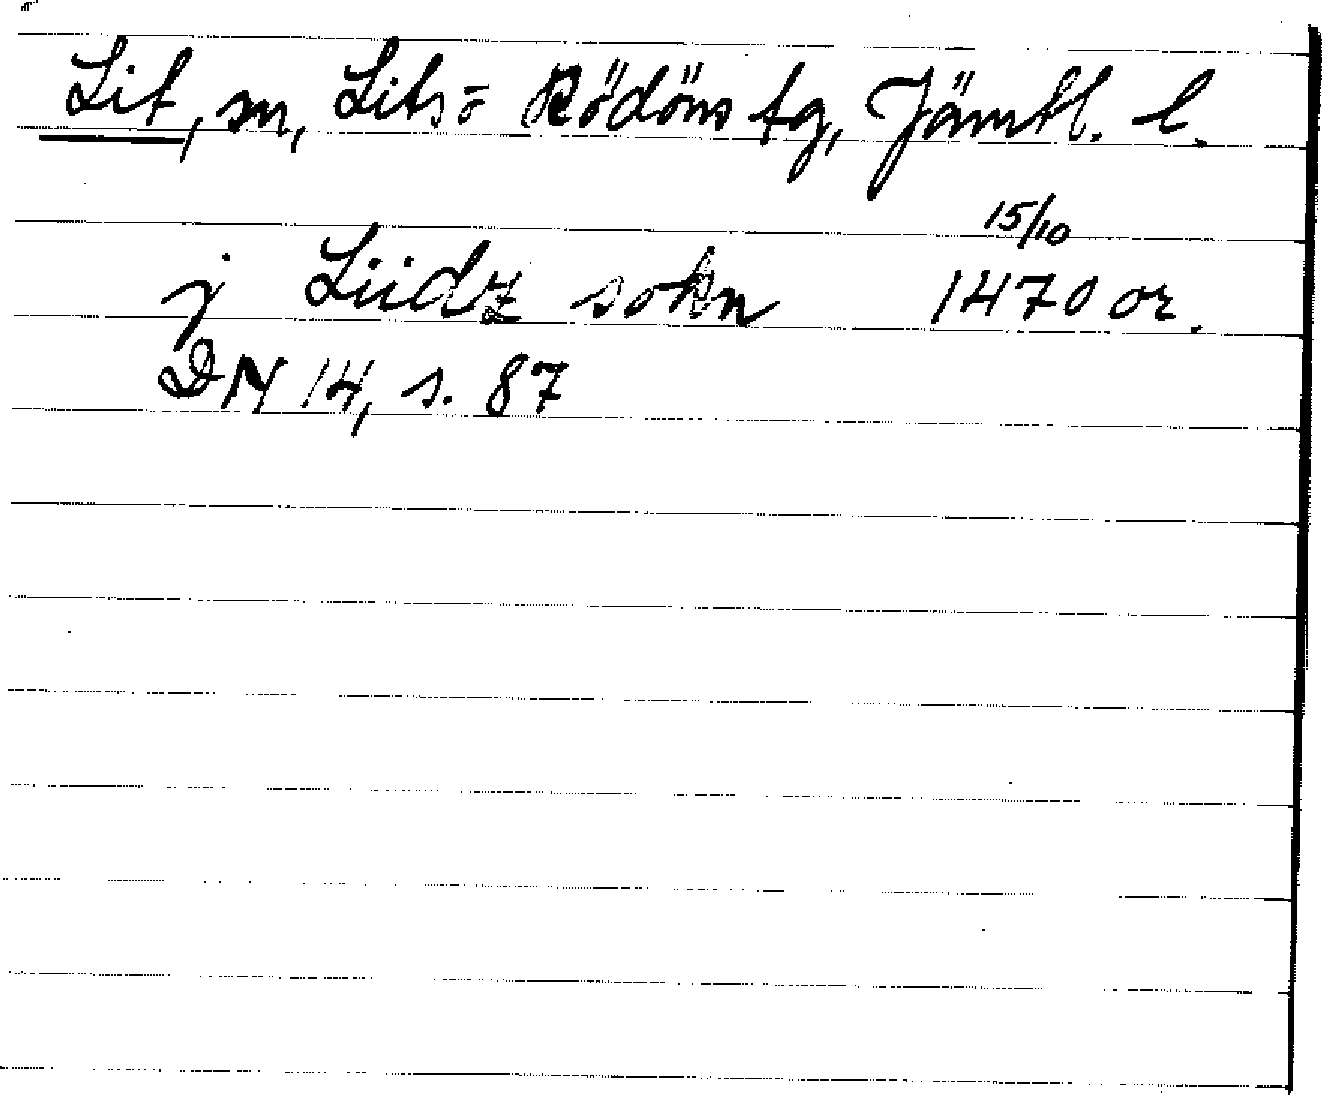 Lit, sn, Lits= Rödöns tg, Jämtl. l.
15/10
j Liidz sokn 1470 or.
DN 14, s. 87